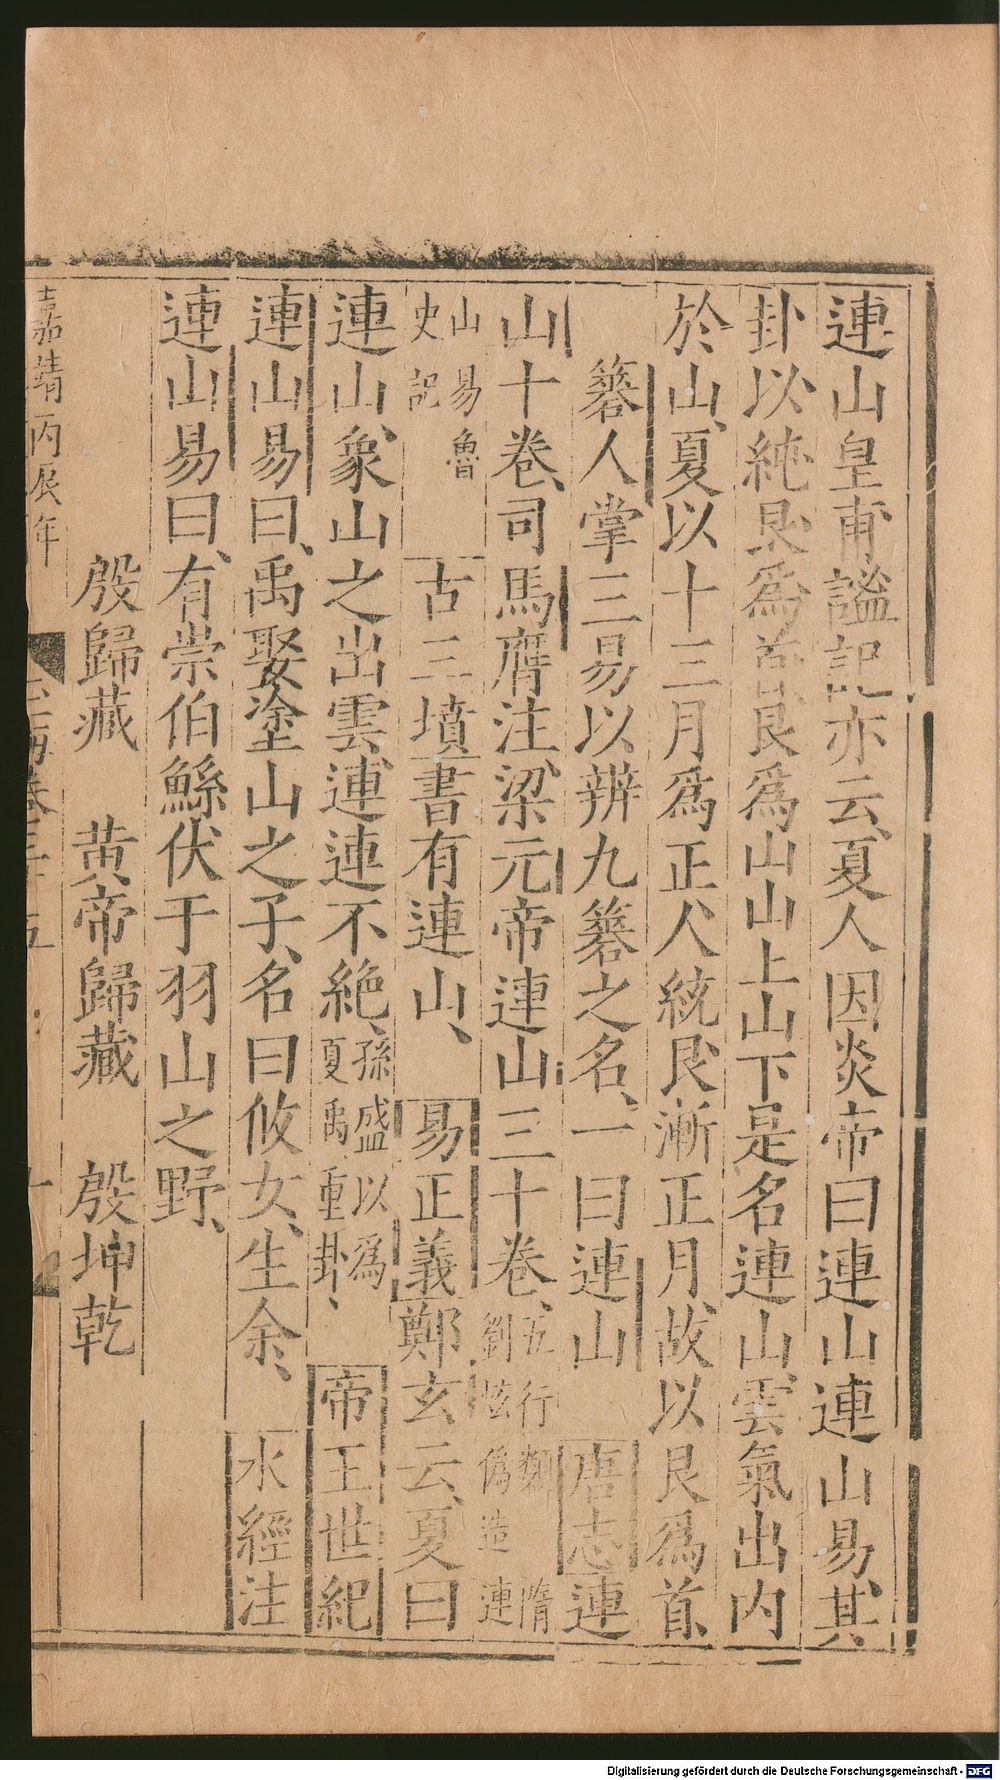 連山皇甫謐記亦云、夏人因炎帝曰連山連山易、其
卦以純艮爲首、艮爲山山上山下是名連山、雲氣出内
於山、夏以十三月爲正、人統艮漸正月、故以艮爲首、
簭人掌三易以辨九簭之名、一曰連山 唐志連
山十卷、司馬膺注、梁元帝連山三十卷、五行類劉炫僞造 隋連
山易魯史記 古三墳書有連山、 易正義鄭玄云、夏曰
連山、象山之出雲、連連不絶、孫盛以爲夏禹重卦、 帝王世紀
連山易曰、禹娶塗山之子、名曰攸女、生余、 水經注
連山易曰、有崇伯鯀伏于羽山之野、
殷歸藏 黄帝歸藏 殷坤乾
嘉靖丙辰年
玉海卷三十五
Digitalisierung gefördert durch die Deutsche Forschungsgemeinschaft - DFG